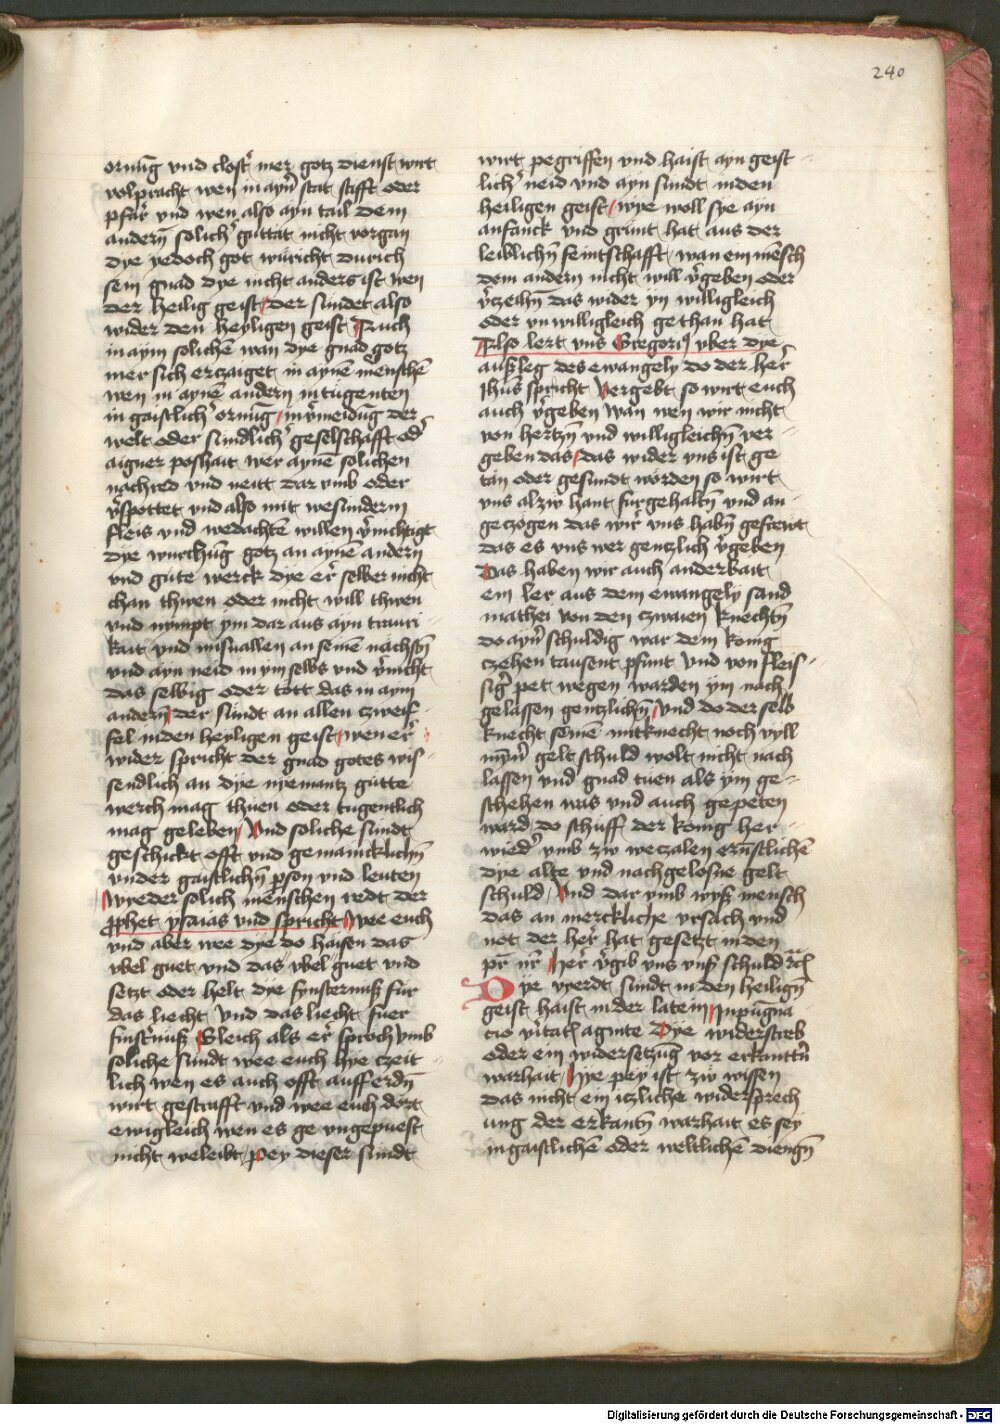 240
ornūg vnd clost᷑ mer gotz dienst wirt
volpracht wen in ayn᷑ stat stifft oder
pfar᷑ vnd wen also ayn tail dem
andern̄ solich᷑ guttat nicht vorgan
dye yedoch got würicht durich
sein gnad dye nicht anders ist wen
der heilig geist der sündet also
wider den heyligen geist Auch
in aym solichē wan dye gnad gotz
mer sich erczaiget in aynē mēnschē
wen in aynē andern in tugenten
in gaistlich᷑ ornūg in v᷑meidūg der
welt oder sundlich᷑ geselschafft od᷑
aigner poshait wer aynē solichen
nachred vnd neitt dar vmb oder
v᷑spottet vnd also mit wesunderm
fleis vnd wedachtē willen v᷑nichtigt
dye wurchūg gotz an aynē andern
vnd gute werck dye er᷑ selber nicht
chan thwen oder nicht will thwen
vnd nympt ym dar aus ayn trauri
kait vnd misuallen an seinē nachstn̄
vnd ayn neid in ym selbs vnd v᷑nicht
das selbig oder tott das in aym
andern̄ der sündt an allen czweif
fel in den heyligen geist wen er᷑
wider spricht der gnad gotes wis
sendlich an dye nyemantz gutte
werch mag thuen oder tugentlich
mag geleben Vnd soliche sündt
geschickt offt vnd gemanicklichn̄
vnder gaistlichn̄ p̲son vnd leuten
Wyeder solich menschen redt der
prophet ysaias vnd spricht Wee euch
vnd aber wee dye do haisen das
vbel guet vnd das vbel guet vnd
setzt oder helt dye fynsternuß für
das liecht Vnd das liecht fuer
finst᷑nuß Gleich als er᷑ sproch vmb
soliche sündt wee euch hye czeit
lich wen es auch offt auff erdn̄
wirt gestrafft vnd wee euch dört
ewigleich wen es ge vngepuest
nicht weleibt Pey dieser sündt
wirt pegriffen vnd haist ayn geist
lich᷑ neid vnd ayn sündt in den
heiligen geist wye woll sye ayn
anfanck vnd grünt hat aus der
leiblichn̄ feintschafft wan ein mēsch
dem andern nicht will v᷑geben oder
v᷑czeichn̄ das wider yn willigleich
oder vnwilligleich gethan hat
Also lert vns Gregori9 vber dye
außleg des ewangely do der her᷑
Jhūs spricht Vergebt so wirt euch
auch v᷑geben Wan wen wir nicht
von hertzn̄ vnd willigleichn̄ ver
geben das das wider vns ist ge
tan oder gesundt worden so wirt
vns alzw hant fürgehaltn̄ vnd an
geczogen das wir᷑ vns habn̄ gefrewt
das es vns wer gentzlich v᷑geben
Das haben wir auch anderbait
ein ler aus dem ewangely sand
mathei von den czwaien knechtn̄
do ayn᷑ schuldig war dem konig
czehen tausent pfunt Vnd von fleis
sig᷑ pet wegen warden ym nach
gelassen gentzlichn̄ Vnd do der selb
knecht seinē mitknecht noch vyll
mȳn᷑ gelt schuld wolt nicht nach
lassen vnd gnad tuen als ym ge
schehen was vnd auch gepeten
ward do schuff der konig her
wied᷑ vmb zw weczalen ernstlichē
dye alte vnd nachgelosne gelt
schuld Vnd dar vmb wyß mensch
das an merckliche vrsach vnd
not der her᷑ hat gesetzt in den
pr̄ nr̄ Her᷑ v᷑gib vns vnß schuld
Dye vyerdt sündt in den heilign̄
geist haist in der latein Inpugna
cio v᷑itat᷑ agnite Dye widerstreb
oder ein widersetzūg vor erkanttn᷑
warhait Hye pey ist zw wissen
das nicht ein iczliche widersprech
ung der erkantn̄ warhait es sey
in gaistlichē oder weltlichē diengn̄
Digitalisierung gefördert durch die Deutsche Forschungsgemeinschaft - DFG